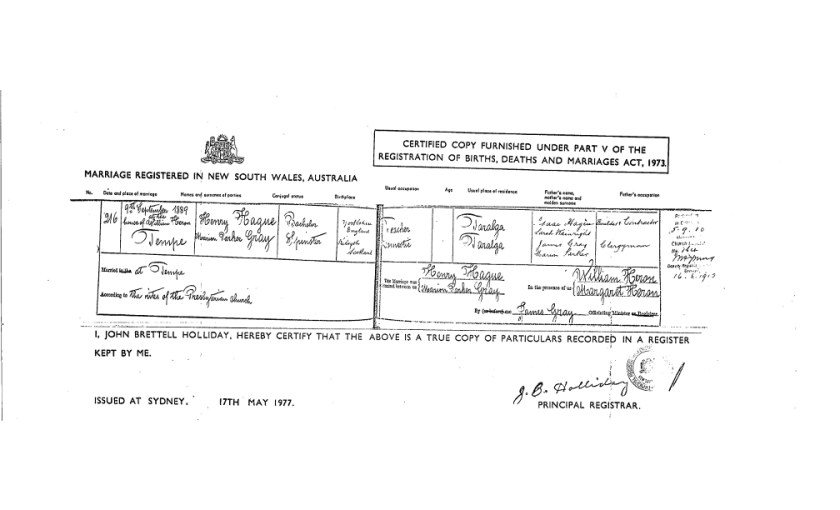 CERTIFIED COPY FURNISHED UNDER PART V OF THE
REGISTRATION OF BIRTHS, DEATHS AND MARRIAGES ACT, 1973.
MARRIAGE REGISTERED IN NEW SOUTH WALES, AUSTRALIA
No. Date and place of marriage Names and surnames of parties Conjugal status Birthplace Usual occupation Age Usual place of residence Father's name, mother's name and maiden surname Father's occupation
216 9th September 1889 Henry Hague Bachelor Yorkshire England Teacher Taralga Isaac Hague Contractor
Tempe Marion Parker Gray Spinster Kilsyth Scotland Taralga James Gray Clergyman
Marion Parker
Married at Tempe
According to the rites of the Presbyterian Church
This Marriage was
Henry Hague
Marion Parker Gray
In the presence of us
William Heron
Margaret Heron
By James Gray officiating Minister
5.9.10
16.6.1913
I, JOHN BRETTELL HOLLIDAY, HEREBY CERTIFY THAT THE ABOVE IS A TRUE COPY OF PARTICULARS RECORDED IN A REGISTER
KEPT BY ME.
ISSUED AT SYDNEY. 17TH MAY 1977.
J. B. Holliday
PRINCIPAL REGISTRAR.